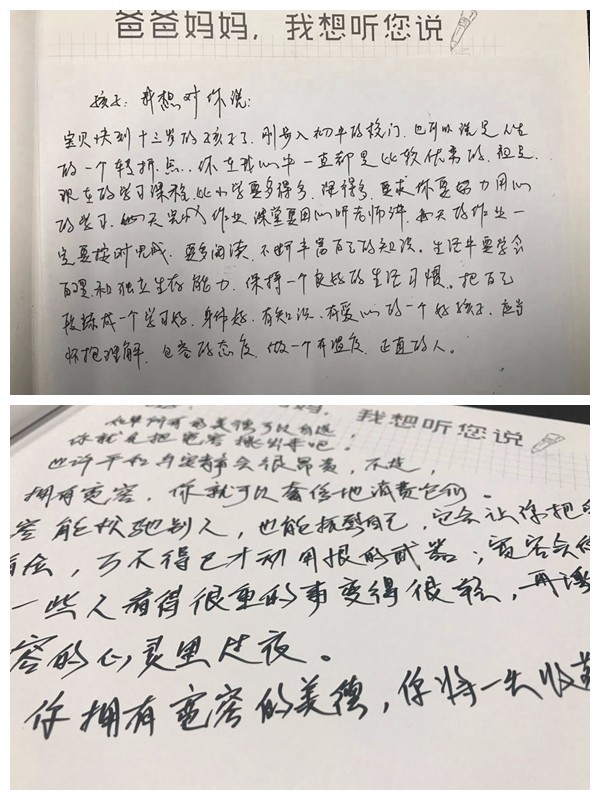 爸爸妈妈，我想听您说
孩子：我想对你说：
宝贝快到十三岁的孩子了，刚步入初中的校门，也可以说是人生
的一个转折点．你在我心中一直都是比较优秀的，但是．
现在的学习课程，比小学要多得多，难得多，要求你要努力用心
的学习，每天完成作业，课堂要用心听老师讲，每天的作业一
定要按时完成，要多阅读，不断丰富自己的知识。生活中要学会
自理和独立生存能力，保持一个良好的生活习惯。把自己
锻炼成一个学习好，身体好，有知识，有爱心的一个好孩子，应当
怀抱理解，包容的态度，做一个有温度，正直的人。
我想听您说
如果所有的美德可以自选
你就先把宽容挑出来吧！
也许平和与安静会很昂贵，不过，
拥有宽容，你就可以奢侈地消费它们。
容能松弛别人，也能抚慰自己，它会让你把
万不得已才动用恨的武器；宽容会使
一些人看得很重的事变得很轻，再
容的心灵里过夜。
你拥有宽容的美德，你将一生收